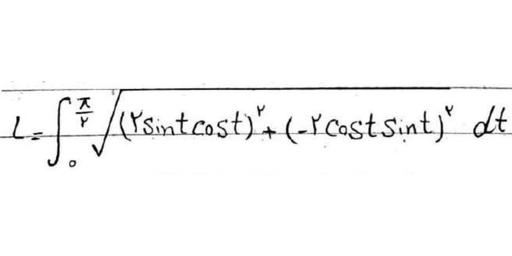 L = ∫₀^(π/۲) √((۲sintcost)^۲ + (-۲costsint)^۲) dt